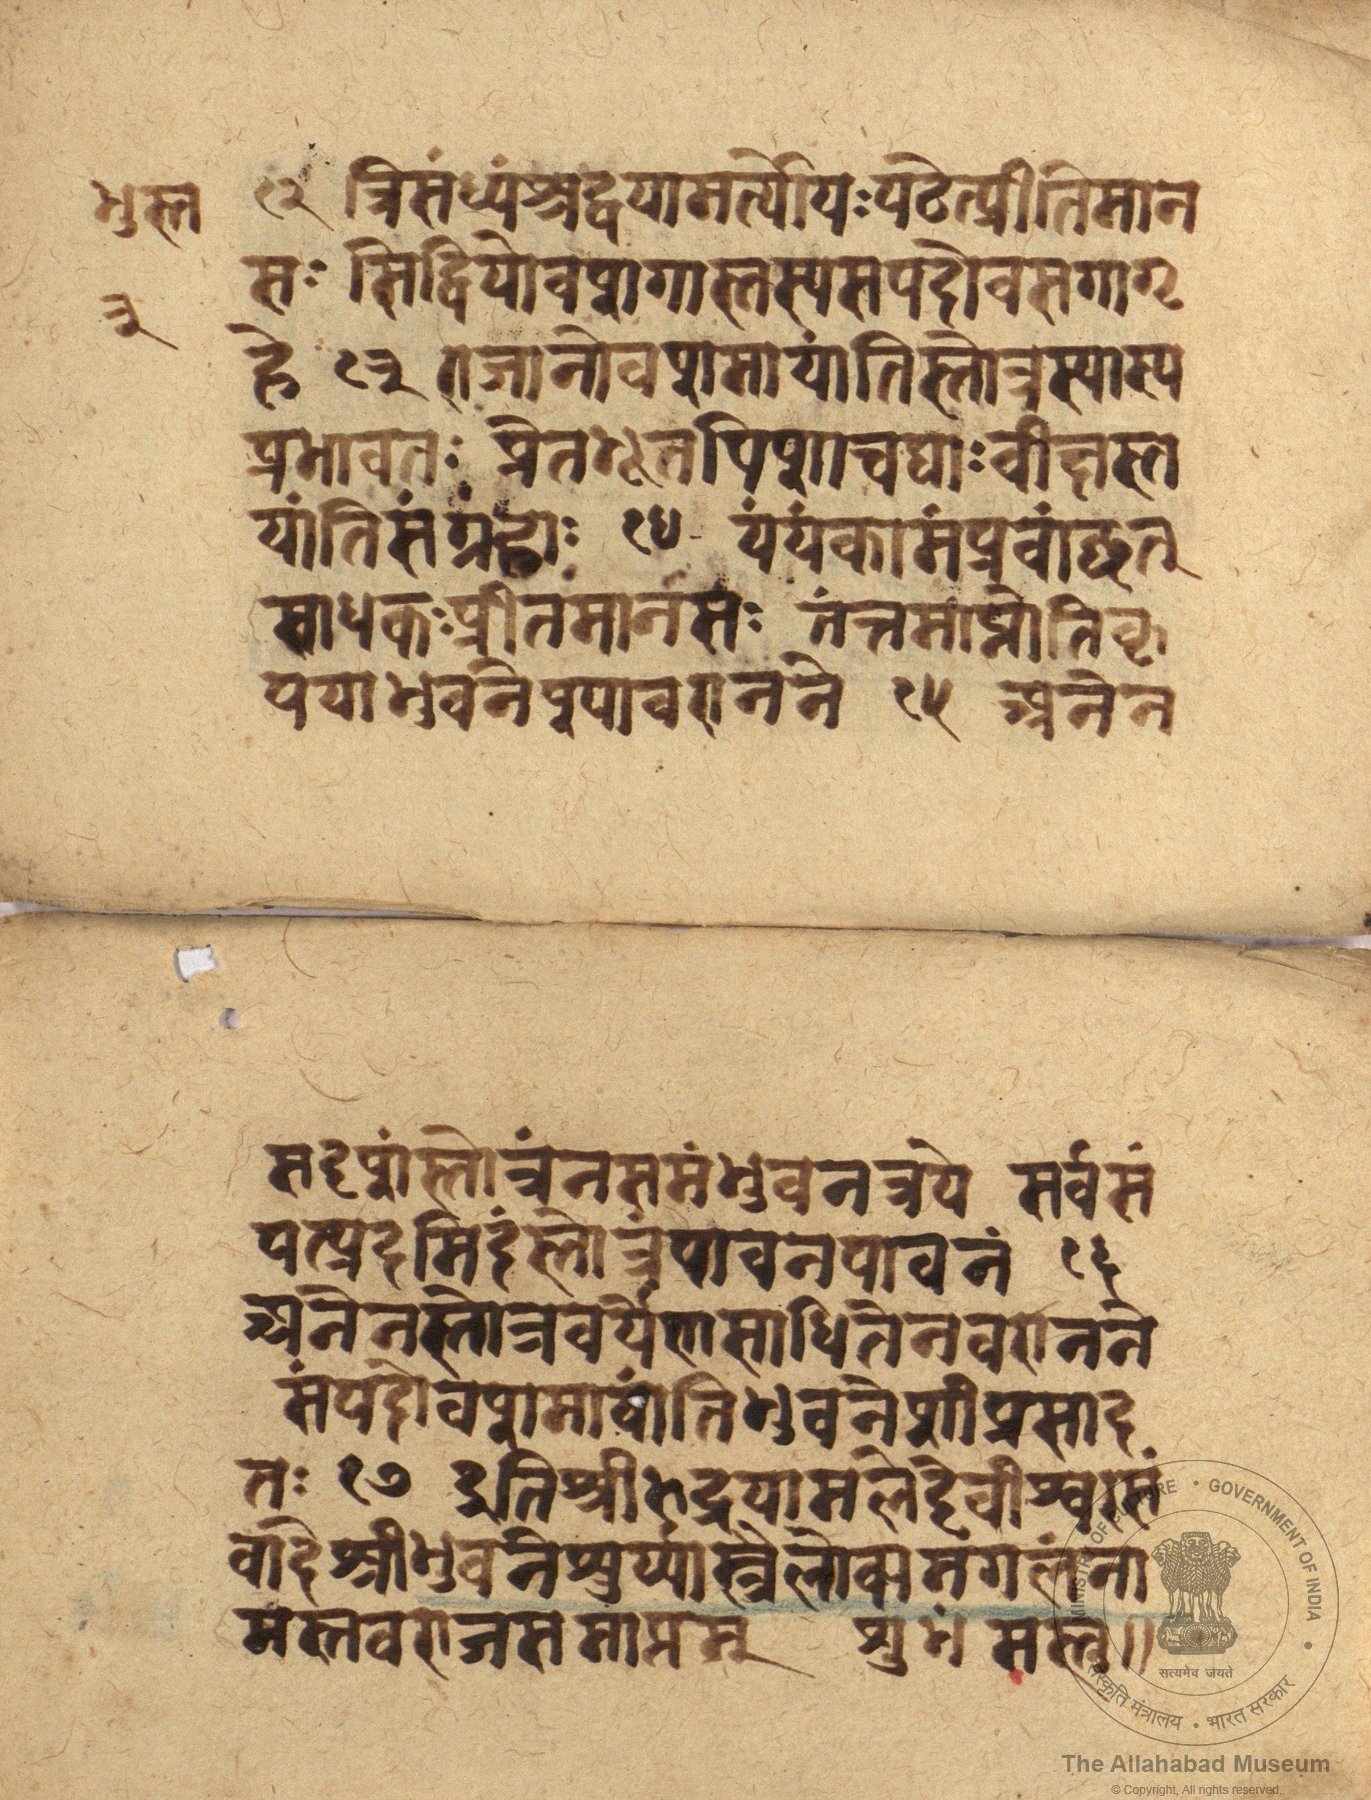 भुस्त
३
१२ त्रिसंध्यंश्रद्वयामर्त्योयःपठेत्प्रीतिमान
सः सिद्धियोवशगास्तस्यसपदोवसगागृ
हे १३ राजानोवशमायांतिस्तोत्रस्यास्य
प्रभावतः प्रेतभूतपिशाचद्याः
यांतिसंग्रहाः १४ यंयंकामंप्रवांछेत्
साधकःप्रीतमानसः तंत्तमाप्नोतिकृ
पयाभुवनेशपावरानने १५ अनेन
सदृशंस्तोत्रंनसमंभुवनत्रये सर्वसं
पत्प्रदमिदंस्तोत्रंपावनपावनं १६
अनेनस्तोत्रवर्येणसाधितेनवरानने
संपदोवशमायांतिभुवनेशीप्रसाद
तः १७ इतिश्रीरुद्रयामलेदेवीश्वरसं
वादेश्रीभुवनेश्वर्य्यास्त्रैलोक्यमंगलंना
मस्तवराजसमाप्तम् शुभंमस्तु॥
MINISTRY OF CULTURE • GOVERNMENT OF INDIA
सत्यमेव जयते
संस्कृति मंत्रालय • भारत सरकार
The Allahabad Museum
© Copyright, All rights reserved.